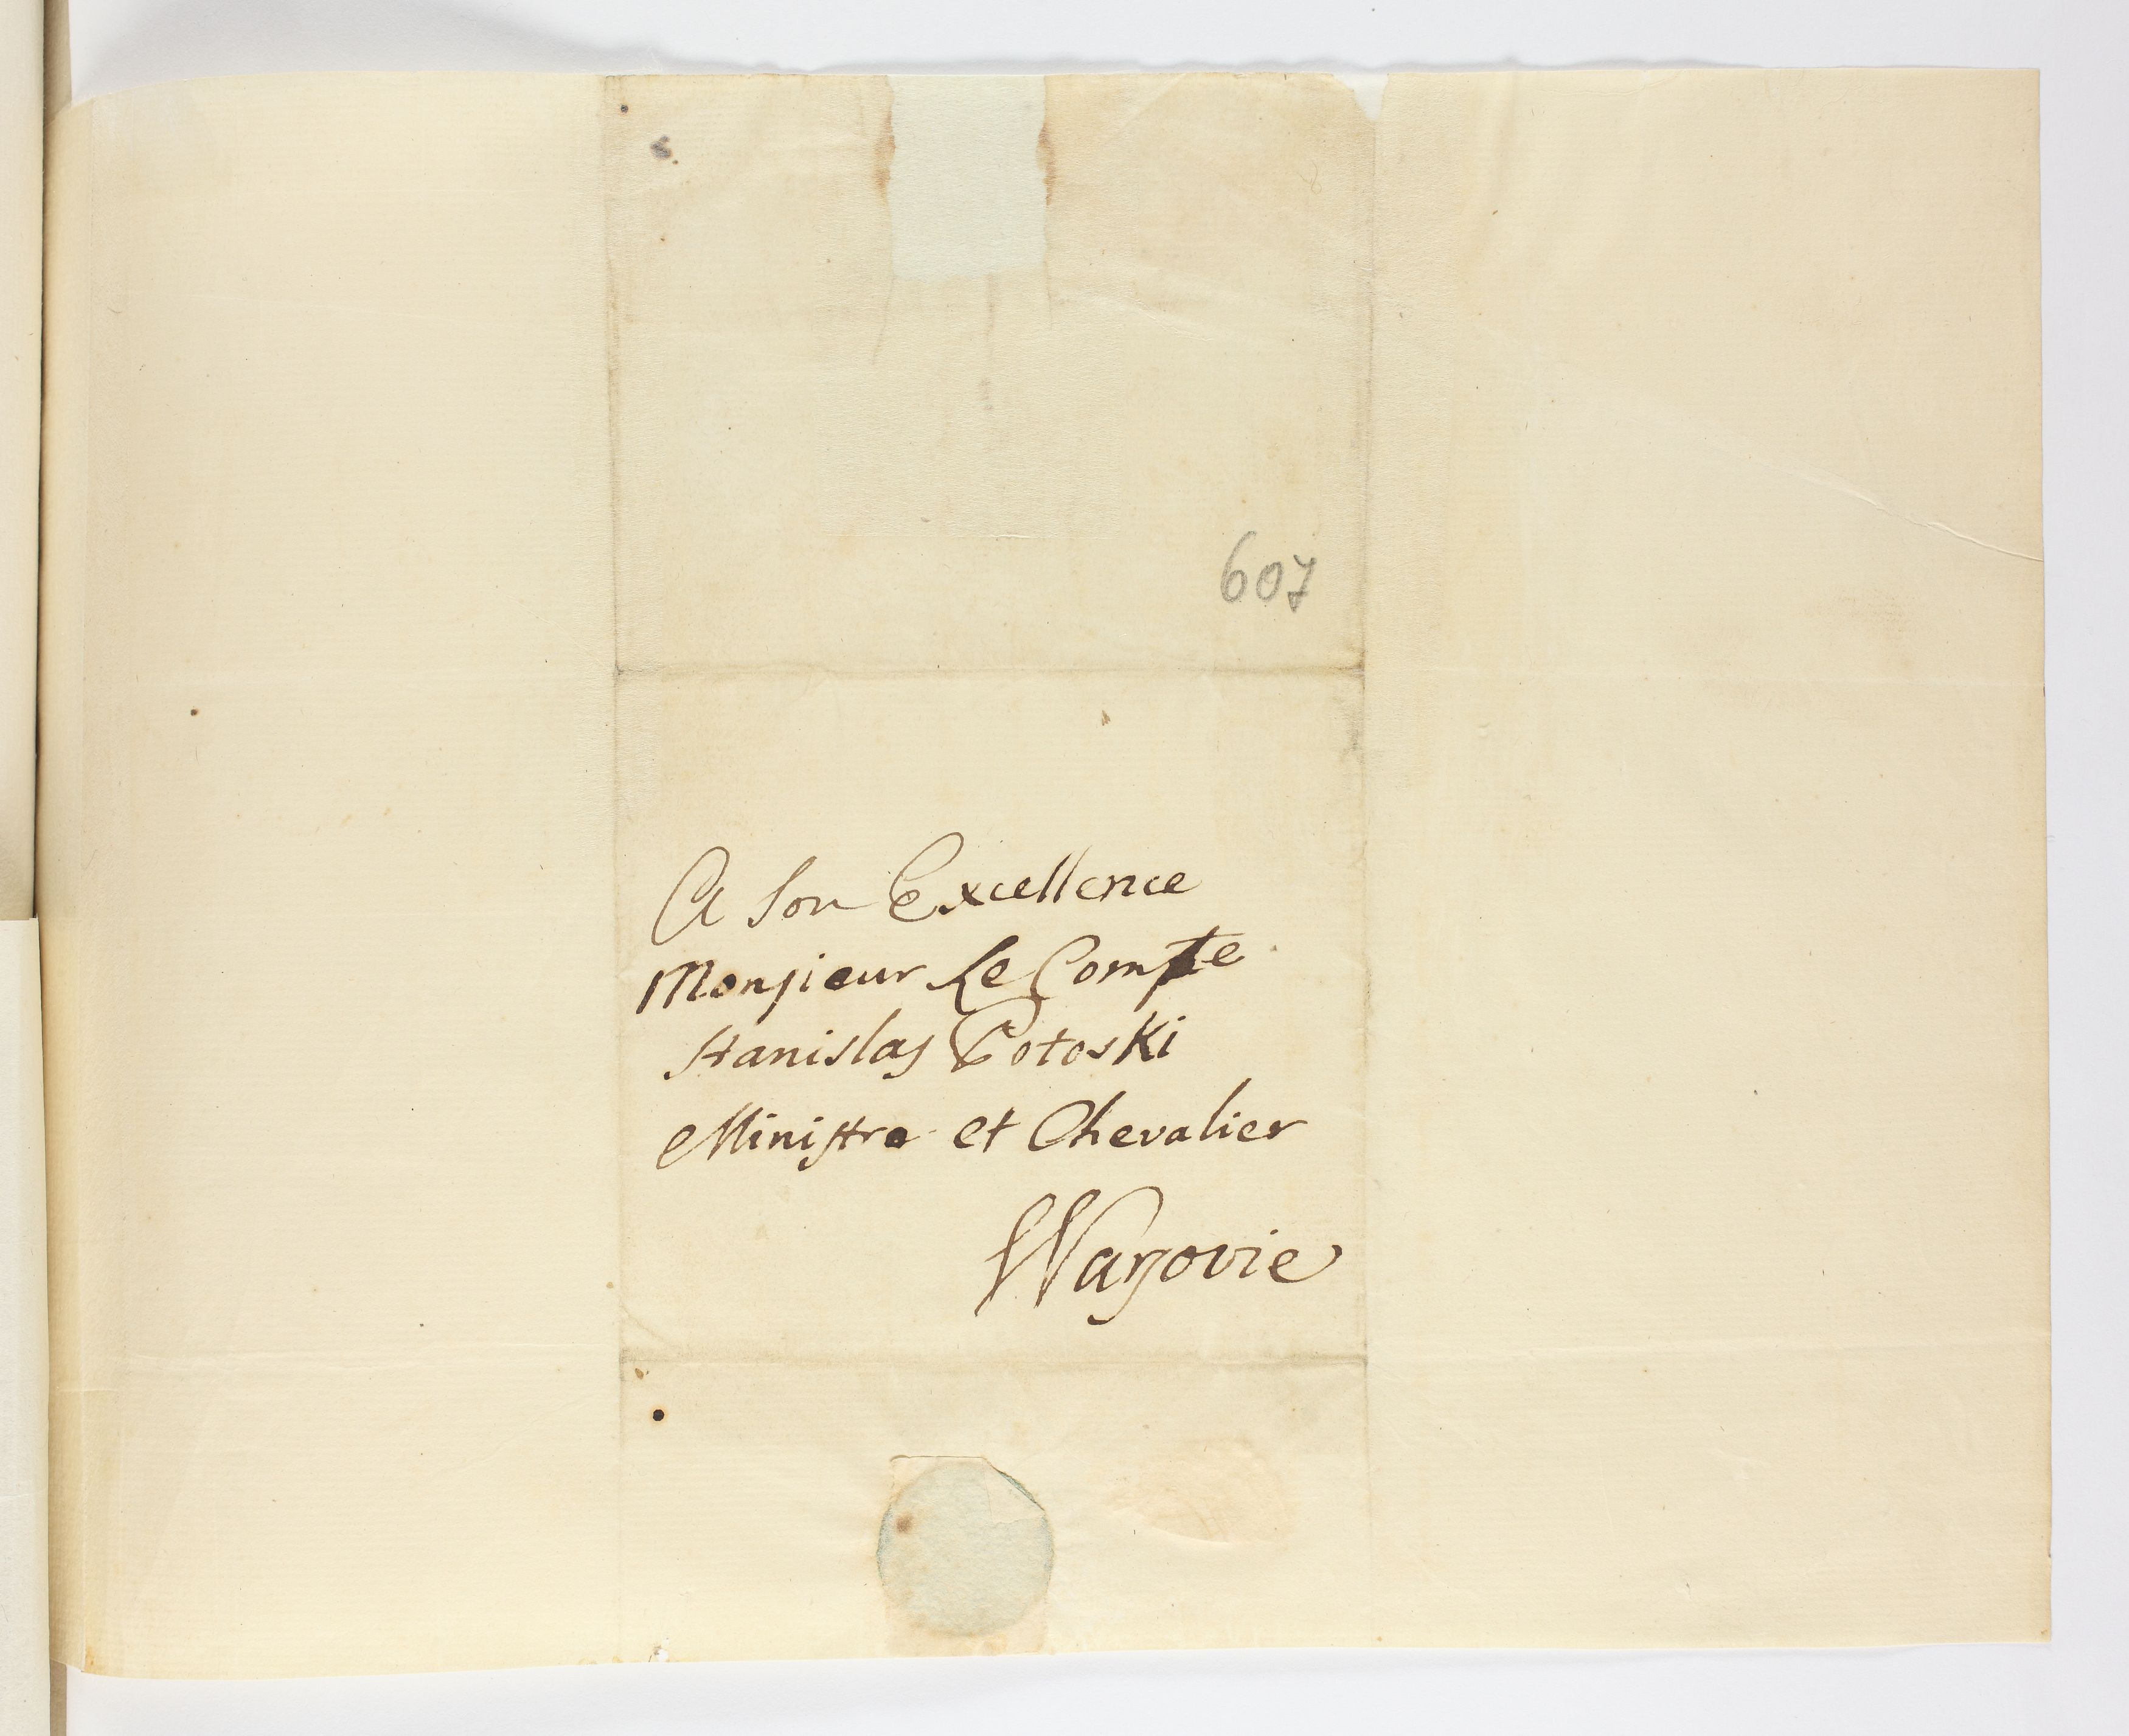 607
A Son Excellence
Monsieur Le Compte
Stanislas Potoski
Ministre et Chevalier
Warsovie